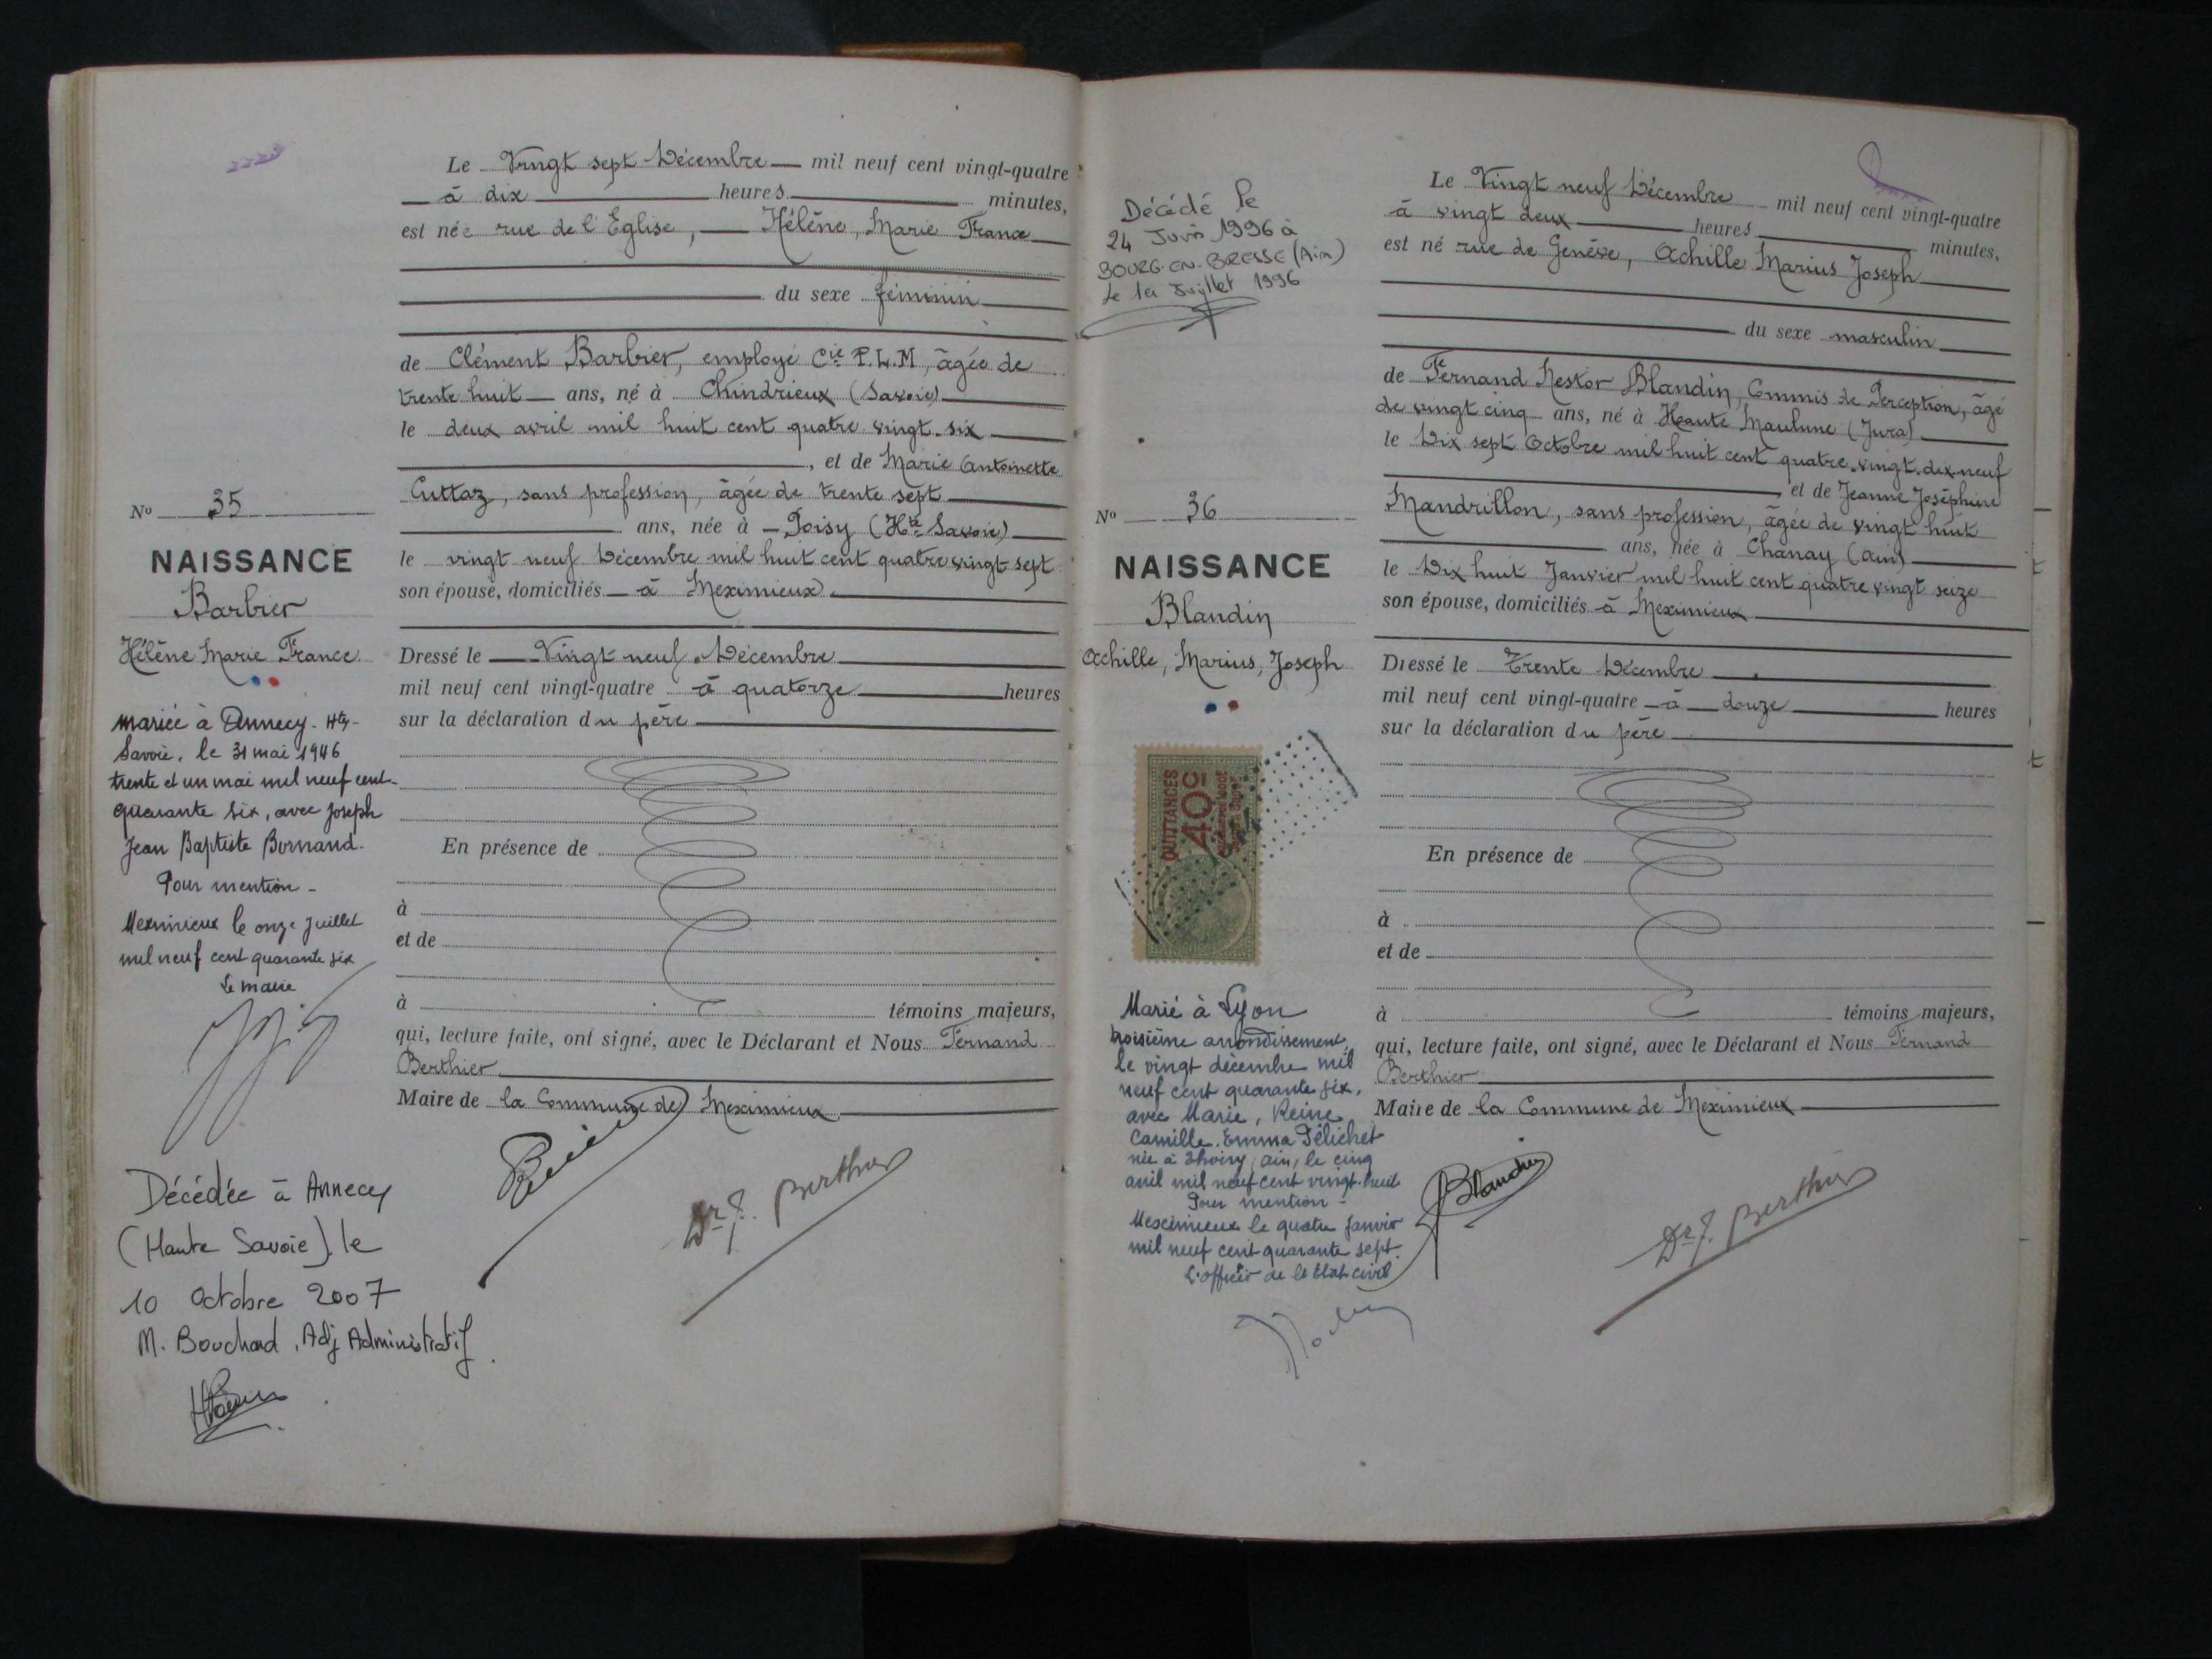 Le Vingt sept Décembre mil neuf cent vingt-quatre
à dix heures minutes,
est née rue de l'Eglise, Hélène, Marie France
du sexe féminin
de Clément Barbier, employé Cie P.L.M, âgée de
trente huit ans, né à Chindrieux (Savoie)
le deux avril mil huit cent quatre vingt six
, et de Marie Antoinette
Cuttaz, sans profession, âgée de trente sept
ans, née à Poisy (Hte Savoie)
le vingt neuf Décembre mil huit cent quatre vingt sept
son épouse, domiciliés à Meximieux.
No 35
NAISSANCE
Barbier
Hélène Marie France
Dressé le Vingt neuf Décembre
mil neuf cent vingt-quatre à quatorze heures
sur la déclaration du père
En présence de
à
et de
à témoins majeurs,
qui, lecture faite, ont signé, avec le Déclarant et Nous Fernand
Berthier
Maire de la Commune de Meximieux
mariée à Annecy - Hte-
Savoie, le 31 mai 1946
trente et un mai mil neuf cent
quarante six, avec Joseph
Jean Baptiste Bornand.
Pour mention -
Meximieux le onze juillet
mil neuf cent quarante six
Le maire
Décédée à Annecy
(Haute Savoie), le
10 Octobre 2007
M. Bouchad, Adj Administratif.
Dr F. Berthier
Décédé le
24 Juin 1996 à
BOURG-EN-BRESSE (Ain)
Le 1er Juillet 1996
Le Vingt neuf Décembre mil neuf cent vingt-quatre
à vingt deux heures minutes,
est né rue de Genève, Achille Marius Joseph
du sexe masculin
de Fernand Nestor Blandin, Commis de Perception, âgé
de vingt cinq ans, né à Haute Maulune (Jura)
le Dix sept Octobre mil huit cent quatre vingt dix neuf
et de Jeanne Joséphine
Mandrillon, sans profession, âgée de vingt huit
ans, née à Chanay (Ain)
le Dix huit Janvier mil huit cent quatre vingt seize
son épouse, domiciliés à Meximieux
No 36
NAISSANCE
Blandin
Achille, Marius, Joseph
Dressé le Trente Décembre
mil neuf cent vingt-quatre à douze heures
sur la déclaration du père
QUITTANCES
40c
En présence de
à
et de
à témoins majeurs,
qui, lecture faite, ont signé, avec le Déclarant et Nous Fernand
Berthier
Maire de la Commune de Meximieux
Marié à Lyon
troisième arrondissement,
le vingt décembre mil
neuf cent quarante six,
avec Marie, Reine,
Camille, Emma Pélichet
née à Thoiry, Ain, le cinq
avril mil neuf cent vingt-huit
Pour mention -
Meximieux le quatre janvier
mil neuf cent quarante sept.
L'officier de l'Etat civil
Blandin
Dr F. Berthier